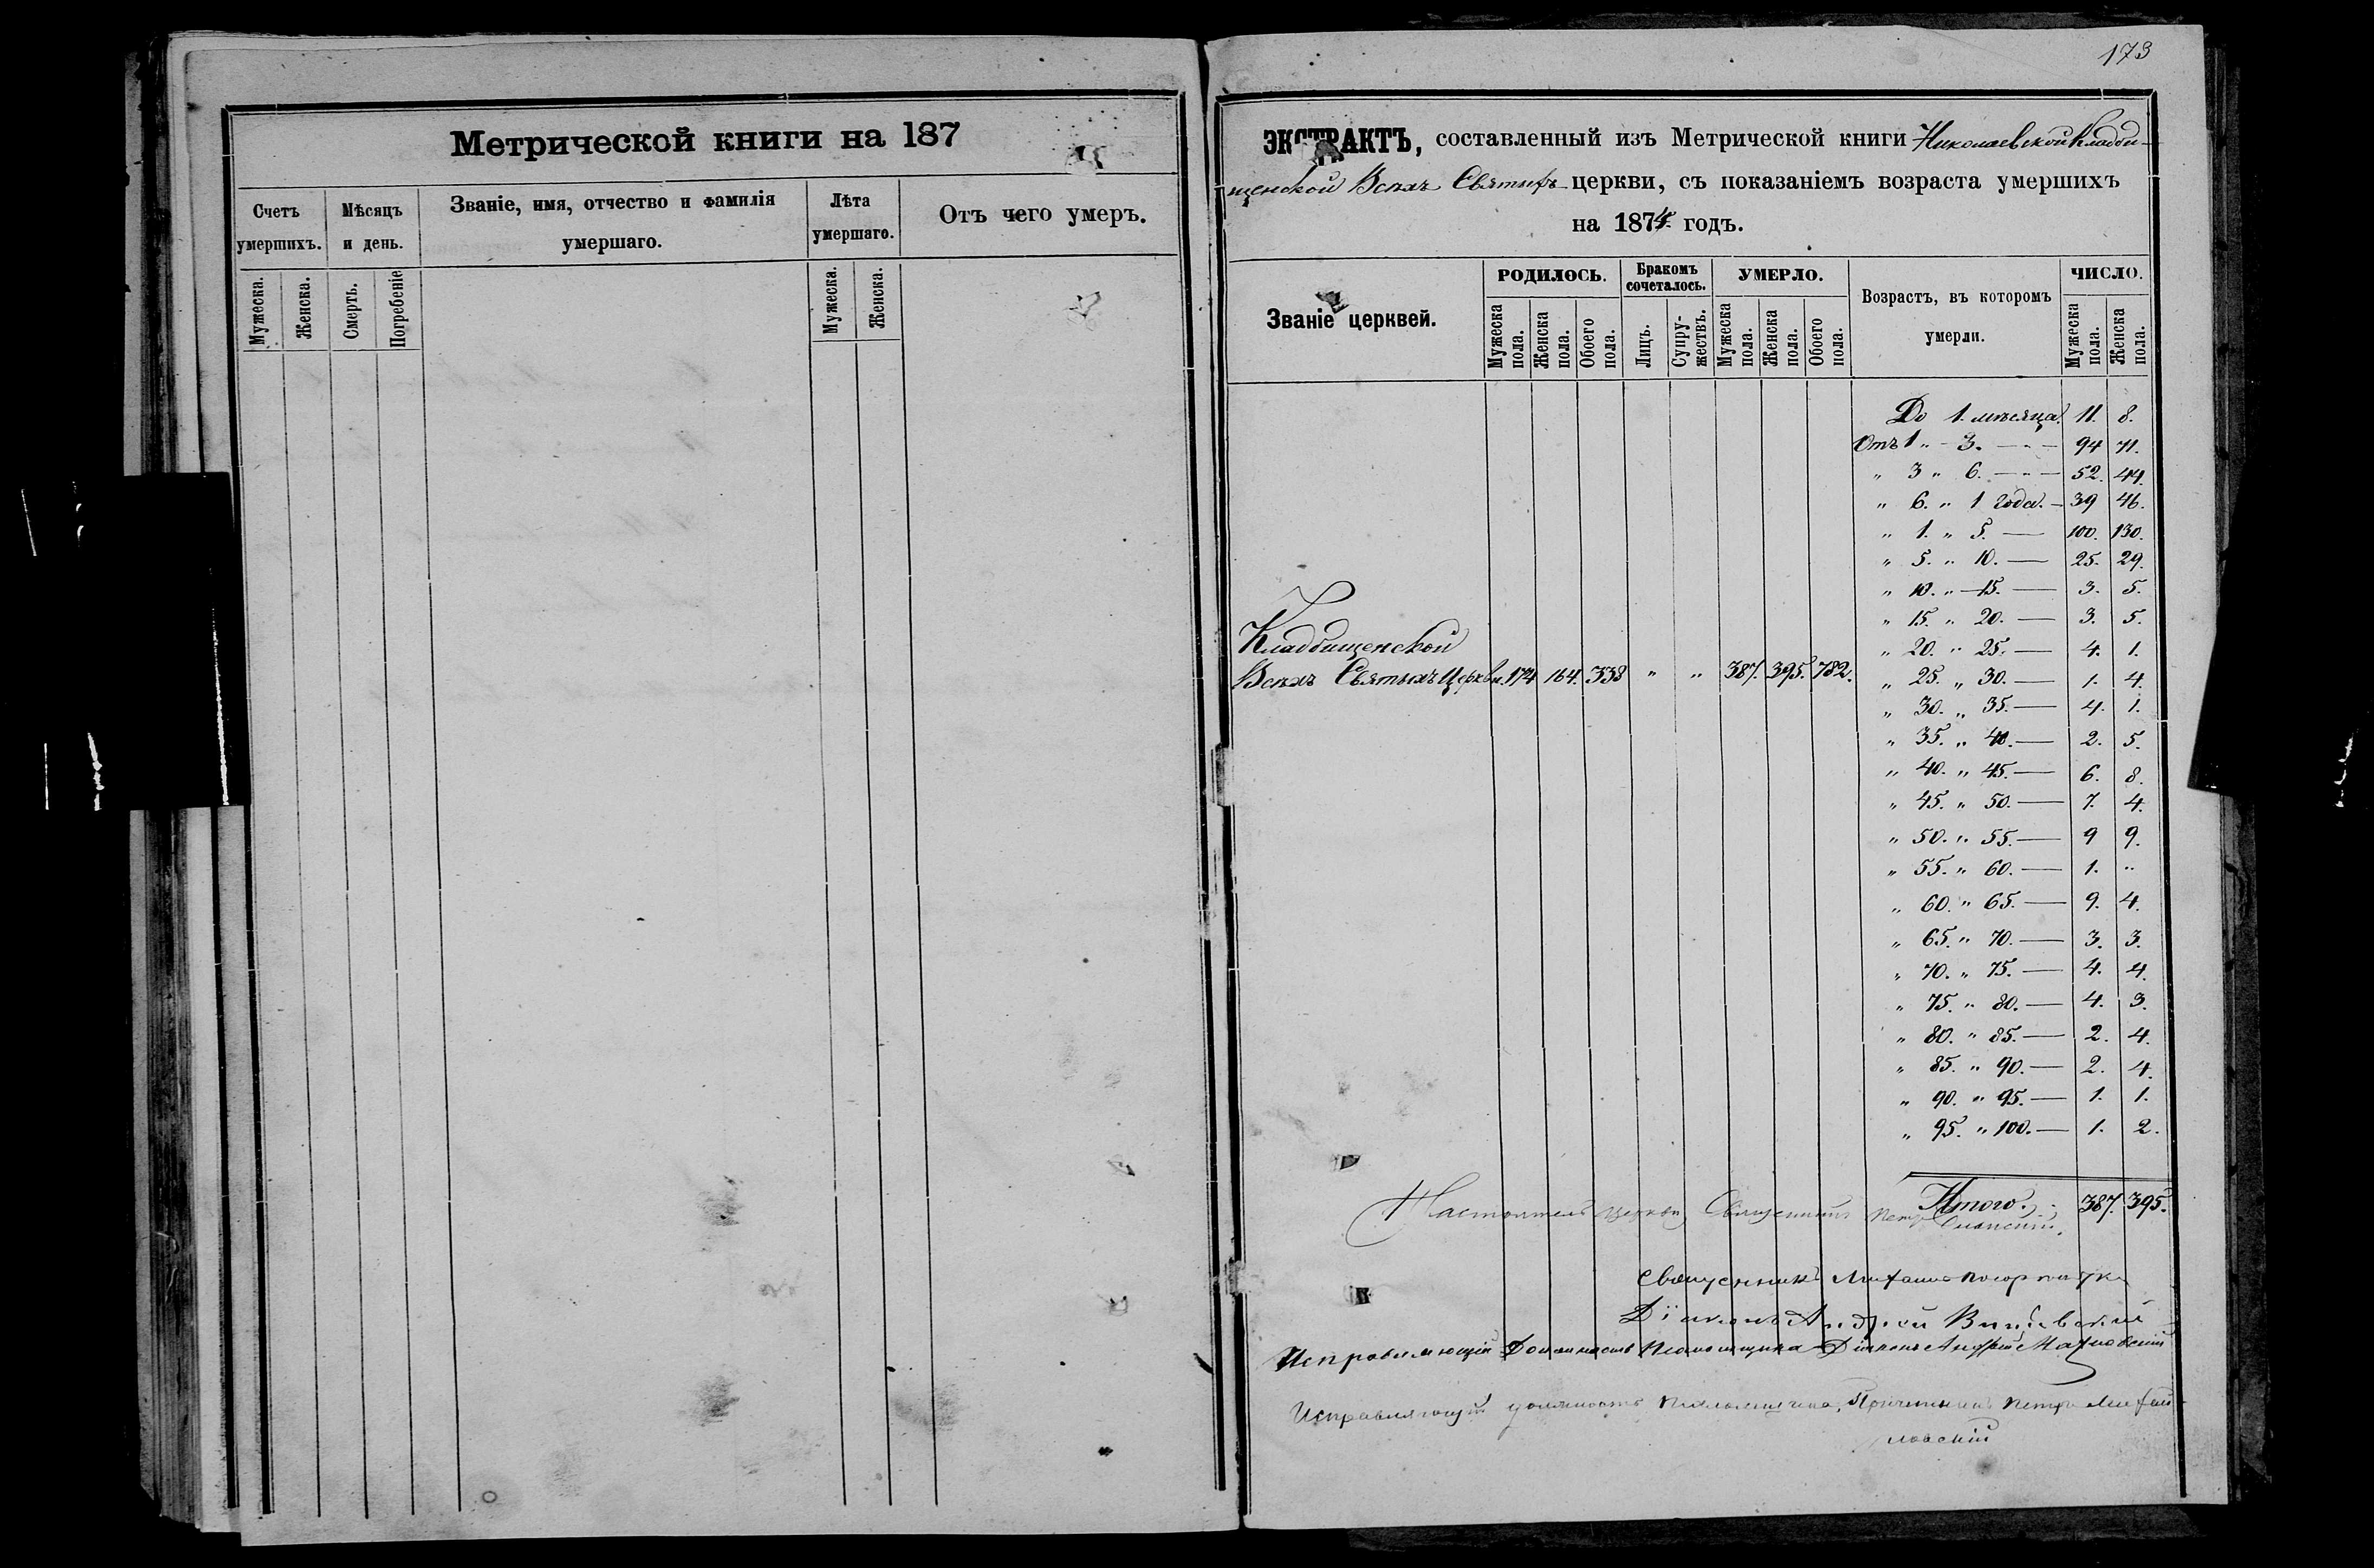 Метрической книги на 187
Счетъ умершихъ. Мѣсяцъ и день. Званіе, имя, отчество и фамилія умершаго. Лѣта умершаго. Отъ чего умеръ.
Мужеска. Женска. Смерть. Погребеніе Мужеска. Женска.
173
ЭКСТРАКТЪ, составленный изъ Метрической книги Николаевской Кладби-
щенской Всѣхъ Святыхъ церкви, съ показаніемъ возраста умершихъ
на 1874 годъ.
Званіе церквей. РОДИЛОСЬ. Бракомъ сочеталось. УМЕРЛО. Возрастъ, въ которомъ умерли. ЧИСЛО.
Мужеска пола. Женска пола. Обоего пола. Лицъ. Супружествъ. Мужеска пола. Женска пола. Обоего пола. Мужеска пола. Женска пола.
До 1. мѣсяца. 11. 8.
Отъ 1 „ - 3. — „ — 94 71.
„ 3 „ 6. — „ — 52. 44.
„ 6. „ 1 года. — 39 46.
„ 1. „ 5. — 100. 130.
„ 5. „ 10. — 25. 29.
„ 10. „ 15. — 3. 5.
„ 15. „ 20. — 3. 5.
Кладбищенской
„ 20. „ 25. — 4. 1.
Всѣхъ Святыхъ Церкви. 174 164. 338 „ „ 387. 395. 782.
„ 25. „ 30. — 1. 4.
„ 30. „ 35. — 4. 1.
„ 35. „ 40. — 2. 5.
„ 40. „ 45. — 6. 8.
„ 45. „ 50. — 7. 4.
„ 50. „ 55. — 9 9.
„ 55. „ 60. — 1. „
„ 60. „ 65. — 9. 4.
„ 65. „ 70. — 3. 3.
„ 70. „ 75. — 4. 4.
„ 75. „ 80. — 4. 3.
„ 80. „ 85. — 2. 4.
„ 85. „ 90. — 2. 4.
„ 90. „ 95. — 1. 1.
„ 95. „ 100. — 1. 2.
Итого. 387. 395.
Настоятель церкви Священникъ Петръ
Священникъ Михаилъ
Діаконъ Андрей
Исправляющій Должность Псаломщика Діаконъ Андрей Махновскій
Исправляющій должность псаломщика, Причетникъ Петръ Михай
ловскій